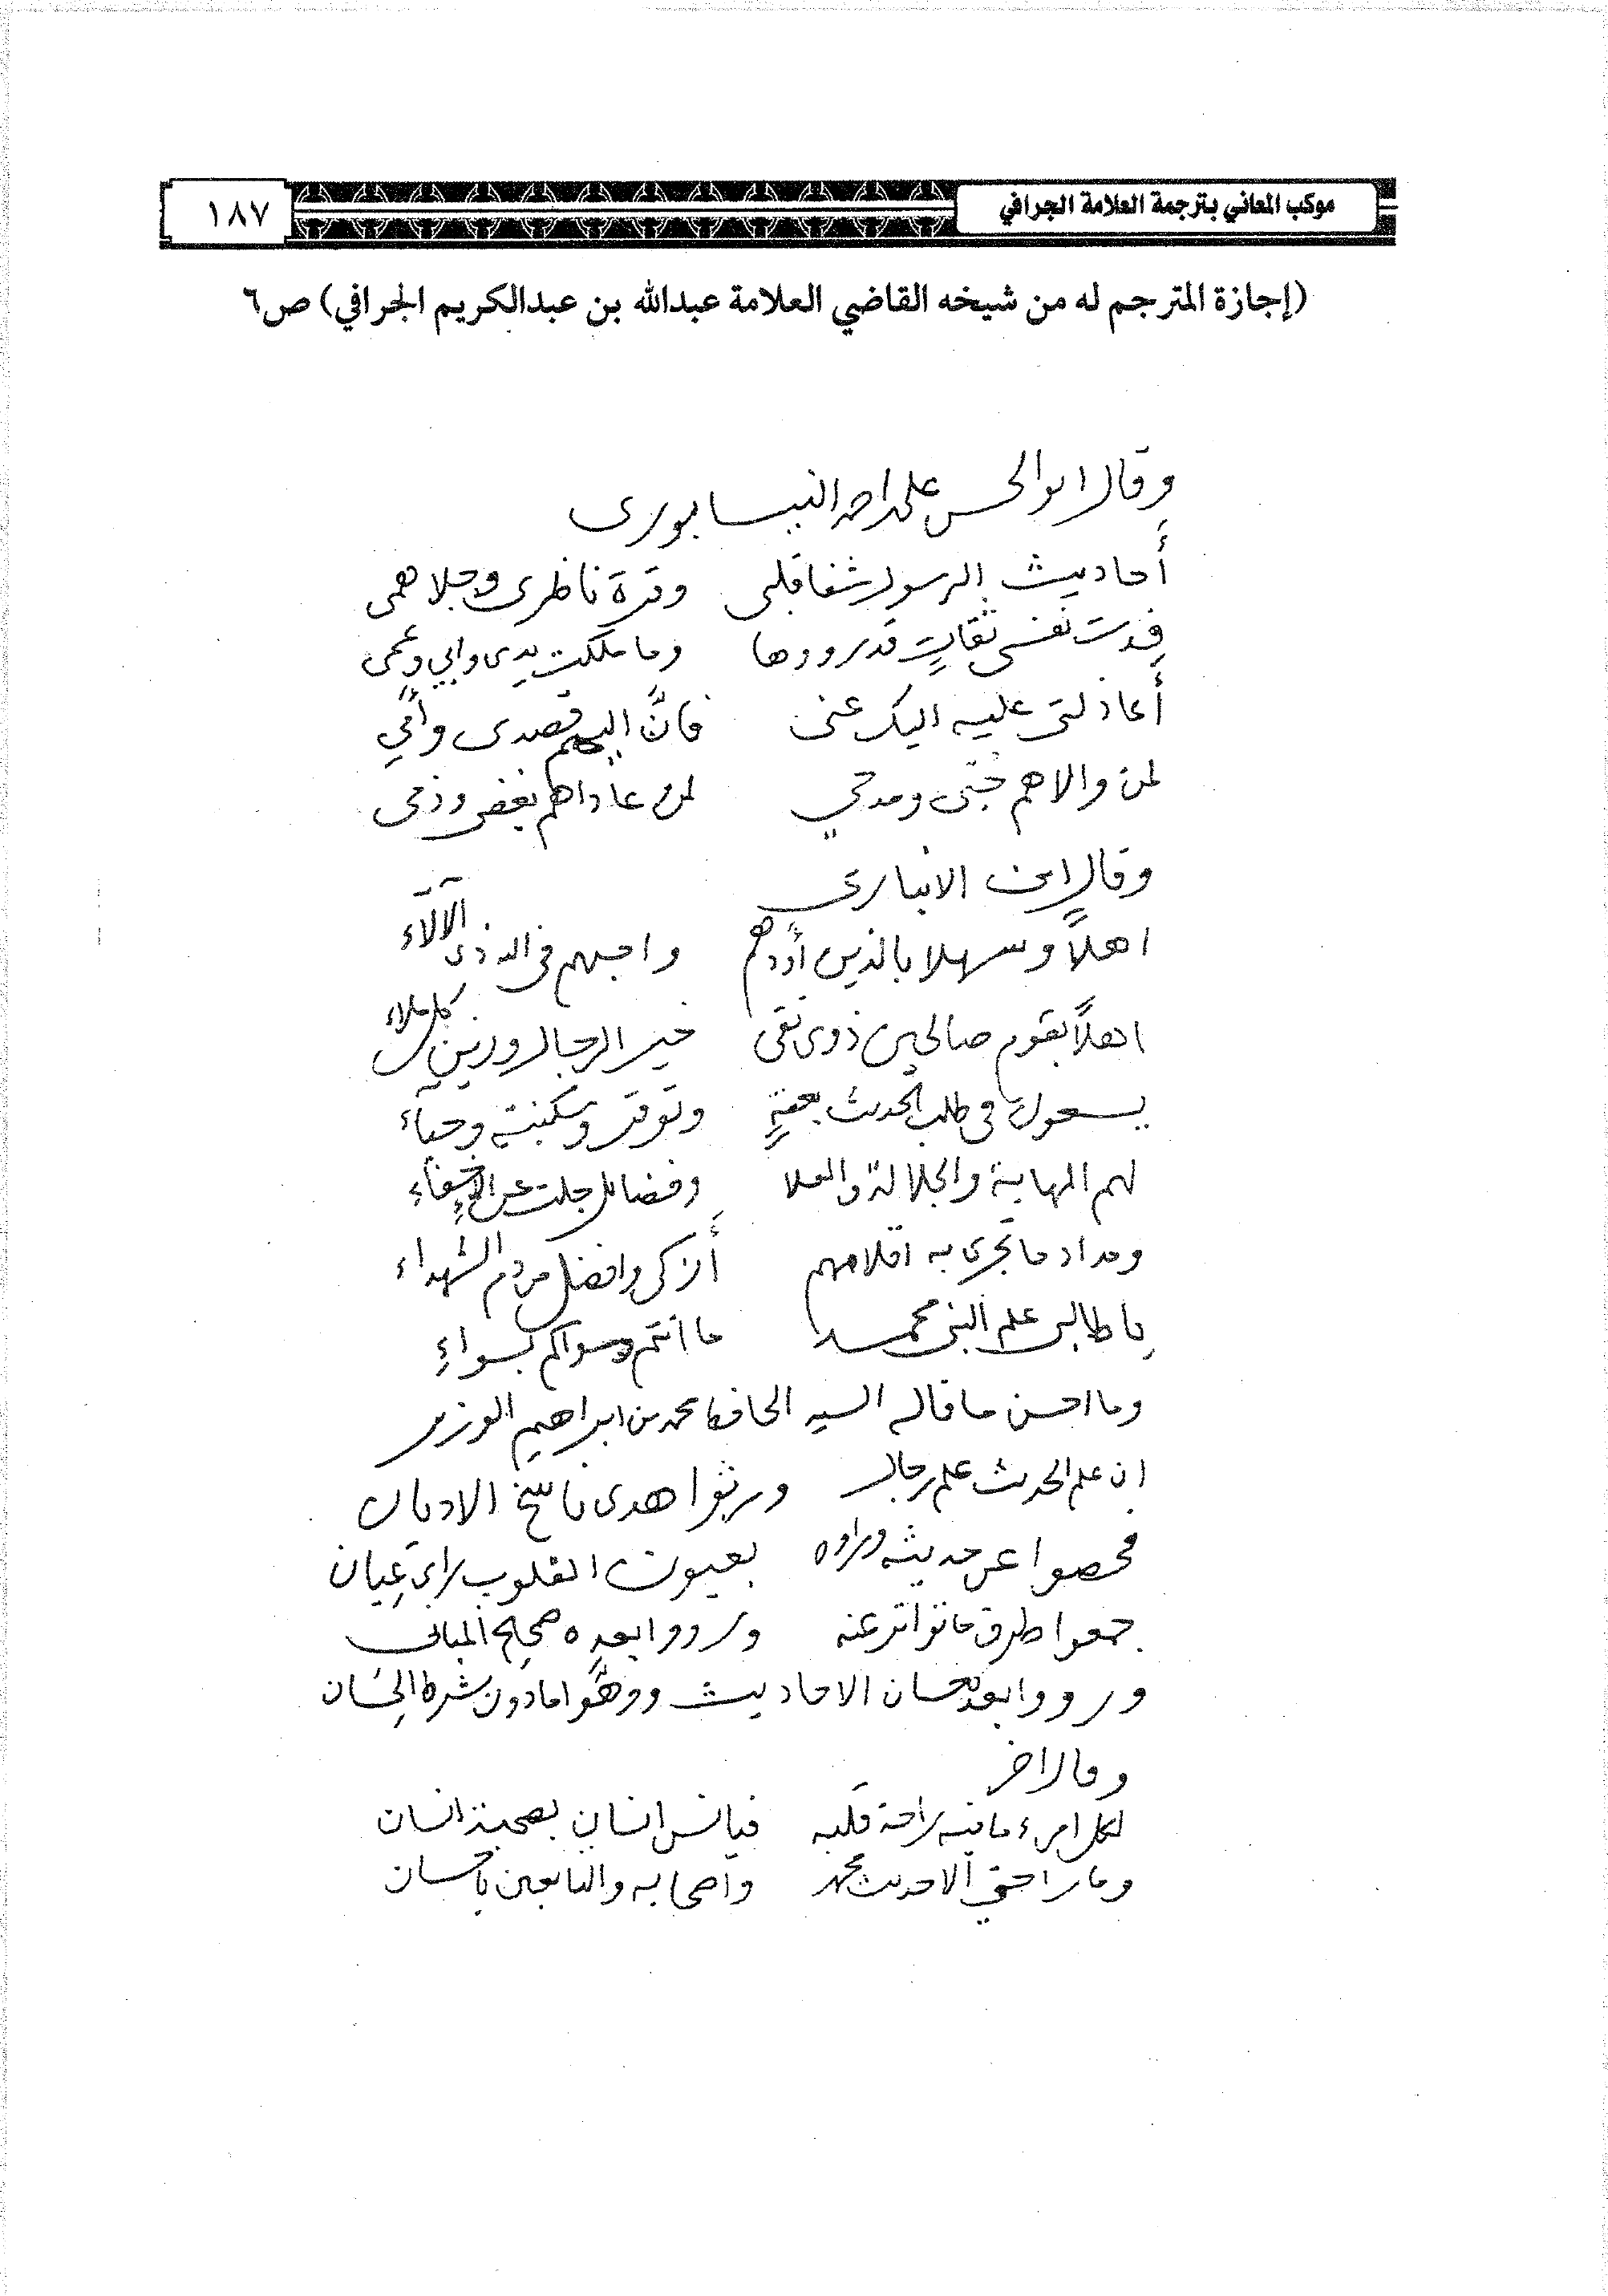 موكب المعاني بترجمة العلامة الجرافي
١٨٧
(إجازة المترجم له من شيخه القاضي العلامة عبدالله بن عبدالكريم الجرافي) ص٦
وقال ابو الحسن علي احمد النيسابورى
أحاديث الرسول شفا قلبى وقرة ناظرى وجلا همى
فدت نفسى ثقات قد رووها وما ملكت يدى وابي وعمى
أعاذلتى عليه اليك عنى فانَّ اليهم قصدى وأمّي
لمن والاهم حبّى ومدحي لمن عاداهم بغضى وذمى
وقال ابن الانبارى
اهلاً وسهلا بالذين أودهم واحبهم فى الله ذى الآلآء
اهلاً بقوم صالحين ذوى تقى خير الرجال وزين كل ملاء
يسعون فى طلب الحديث بعفةٍ وتوقر وسكينة وحياء
لهم المهابة والجلالة والعلا وفضائل جلت عن الإخفاءِ
ومداد ما تجرى به اقلامهم أزكى وافضل من دم الشهداء
يا طالبى علم النبى محمد ما انتم وسواكم بسواءِ
وما احسن ما قاله السيد الحافظ محمد بن ابراهيم الوزير
ان علم الحديث علم رجال ورثوا هدى ناسخ الاديان
فحصوا عن حديثه ورواوه بعيون القلوب رأى عِيان
جمعوا طرق ما تواتر عنه ورووا بعده صحيح المبانى
ورووا بعد حسان الاحاديث ووهَّوا ما دون شرط الحِسَان
وقال اخر
لكل امرء ما فيه راحة قلبه فيانس انسان بصحبة انسان
وما راحتي الا حديث محمد واصحابه والتابعين باحسان